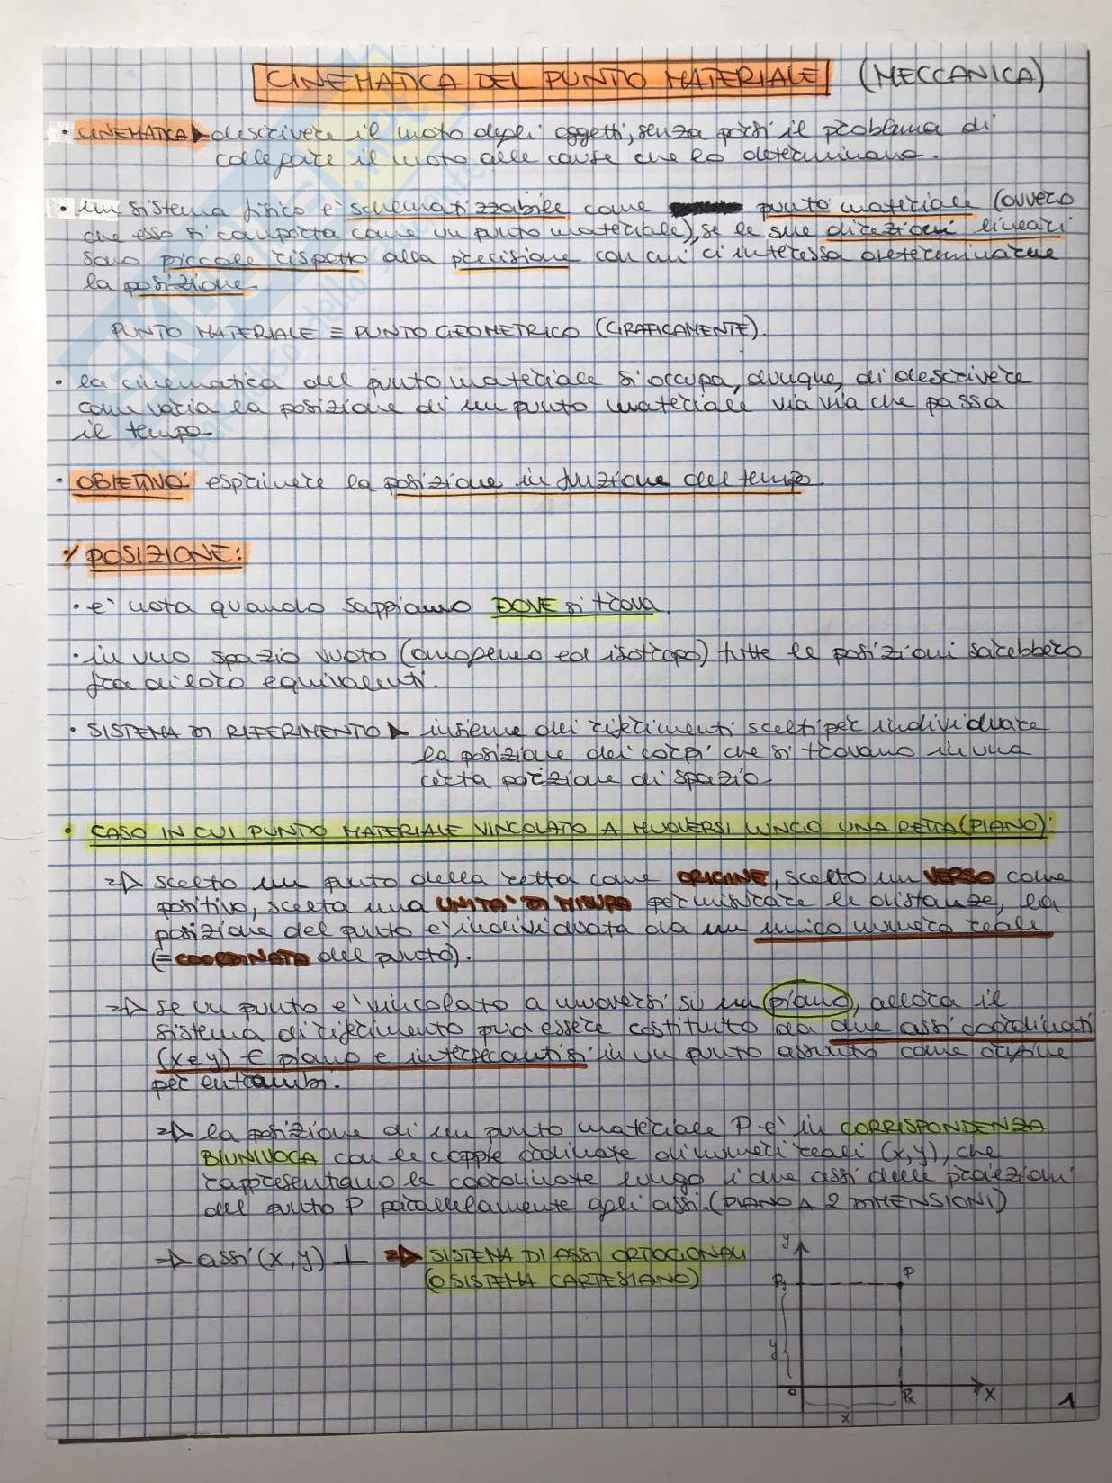 CINEMATICA DEL PUNTO MATERIALE (MECCANICA)
• CINEMATICA → descrivere il moto degli oggetti, senza porsi il problema di
collegare il moto alle cause che lo determinano.
• un sistema fisico è schematizzabile come punto materiale (ovvero
che esso si comporta come un punto materiale), se le sue direzioni lineari
sono piccole rispetto alla precisione con cui ci interessa determinarne
la posizione.
PUNTO MATERIALE ≡ PUNTO GEOMETRICO (GRAFICAMENTE).
• la cinematica del punto materiale si occupa, dunque, di descrivere
come varia la posizione di un punto materiale via via che passa
il tempo.
• OBIETTIVO: esprimere la posizione in funzione del tempo.
POSIZIONE:
• è nota quando sappiamo DOVE si trova.
• in uno spazio vuoto (omogeneo ed isotropo) tutte le posizioni sarebbero
fra di loro equivalenti.
• SISTEMA DI RIFERIMENTO → insieme dei riferimenti scelti per individuare
la posizione dei corpi che si trovano in una
certa porzione di spazio.
• CASO IN CUI PUNTO MATERIALE VINCOLATO A MUOVERSI LUNGO UNA RETTA (PIANO):
⇒ scelto un punto della retta come ORIGINE, scelto un VERSO come
positivo, scelta una UNITA' DI MISURA per misurare le distanze, la
posizione del punto è individuata da un unico numero reale
(= COORDINATA del punto).
⇒ se un punto è vincolato a muoversi su un piano, allora il
sistema di riferimento può essere costituito da due assi coordinati
(x e y) ∈ piano e intersecantisi in un punto assunto come origine
per entrambi.
⇒ la posizione di un punto materiale P è in CORRISPONDENZA
BIUNIVOCA con le coppie ordinate di numeri reali (x,y), che
rappresentano le coordinate lungo i due assi delle proiezioni
del punto P parallelamente agli assi (PIANO A 2 DIMENSIONI)
⇒ assi (x,y) ⊥ ⇒ SISTEMA DI ASSI ORTOGONALI
(O SISTEMA CARTESIANO)
y
Py P
y
0 Px x
x
1